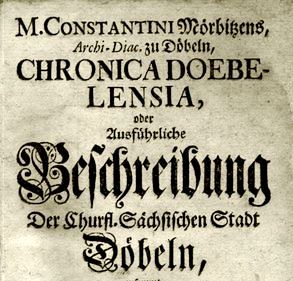 M. CONSTANTINI Mörbitzens,
Archi-Diac. zu Döbeln,
CHRONICA DOEBE-
LENSIA,
oder
Ausführliche
Beſchreibung
Der Churfl. Sächſiſchen Stadt
Döbeln,